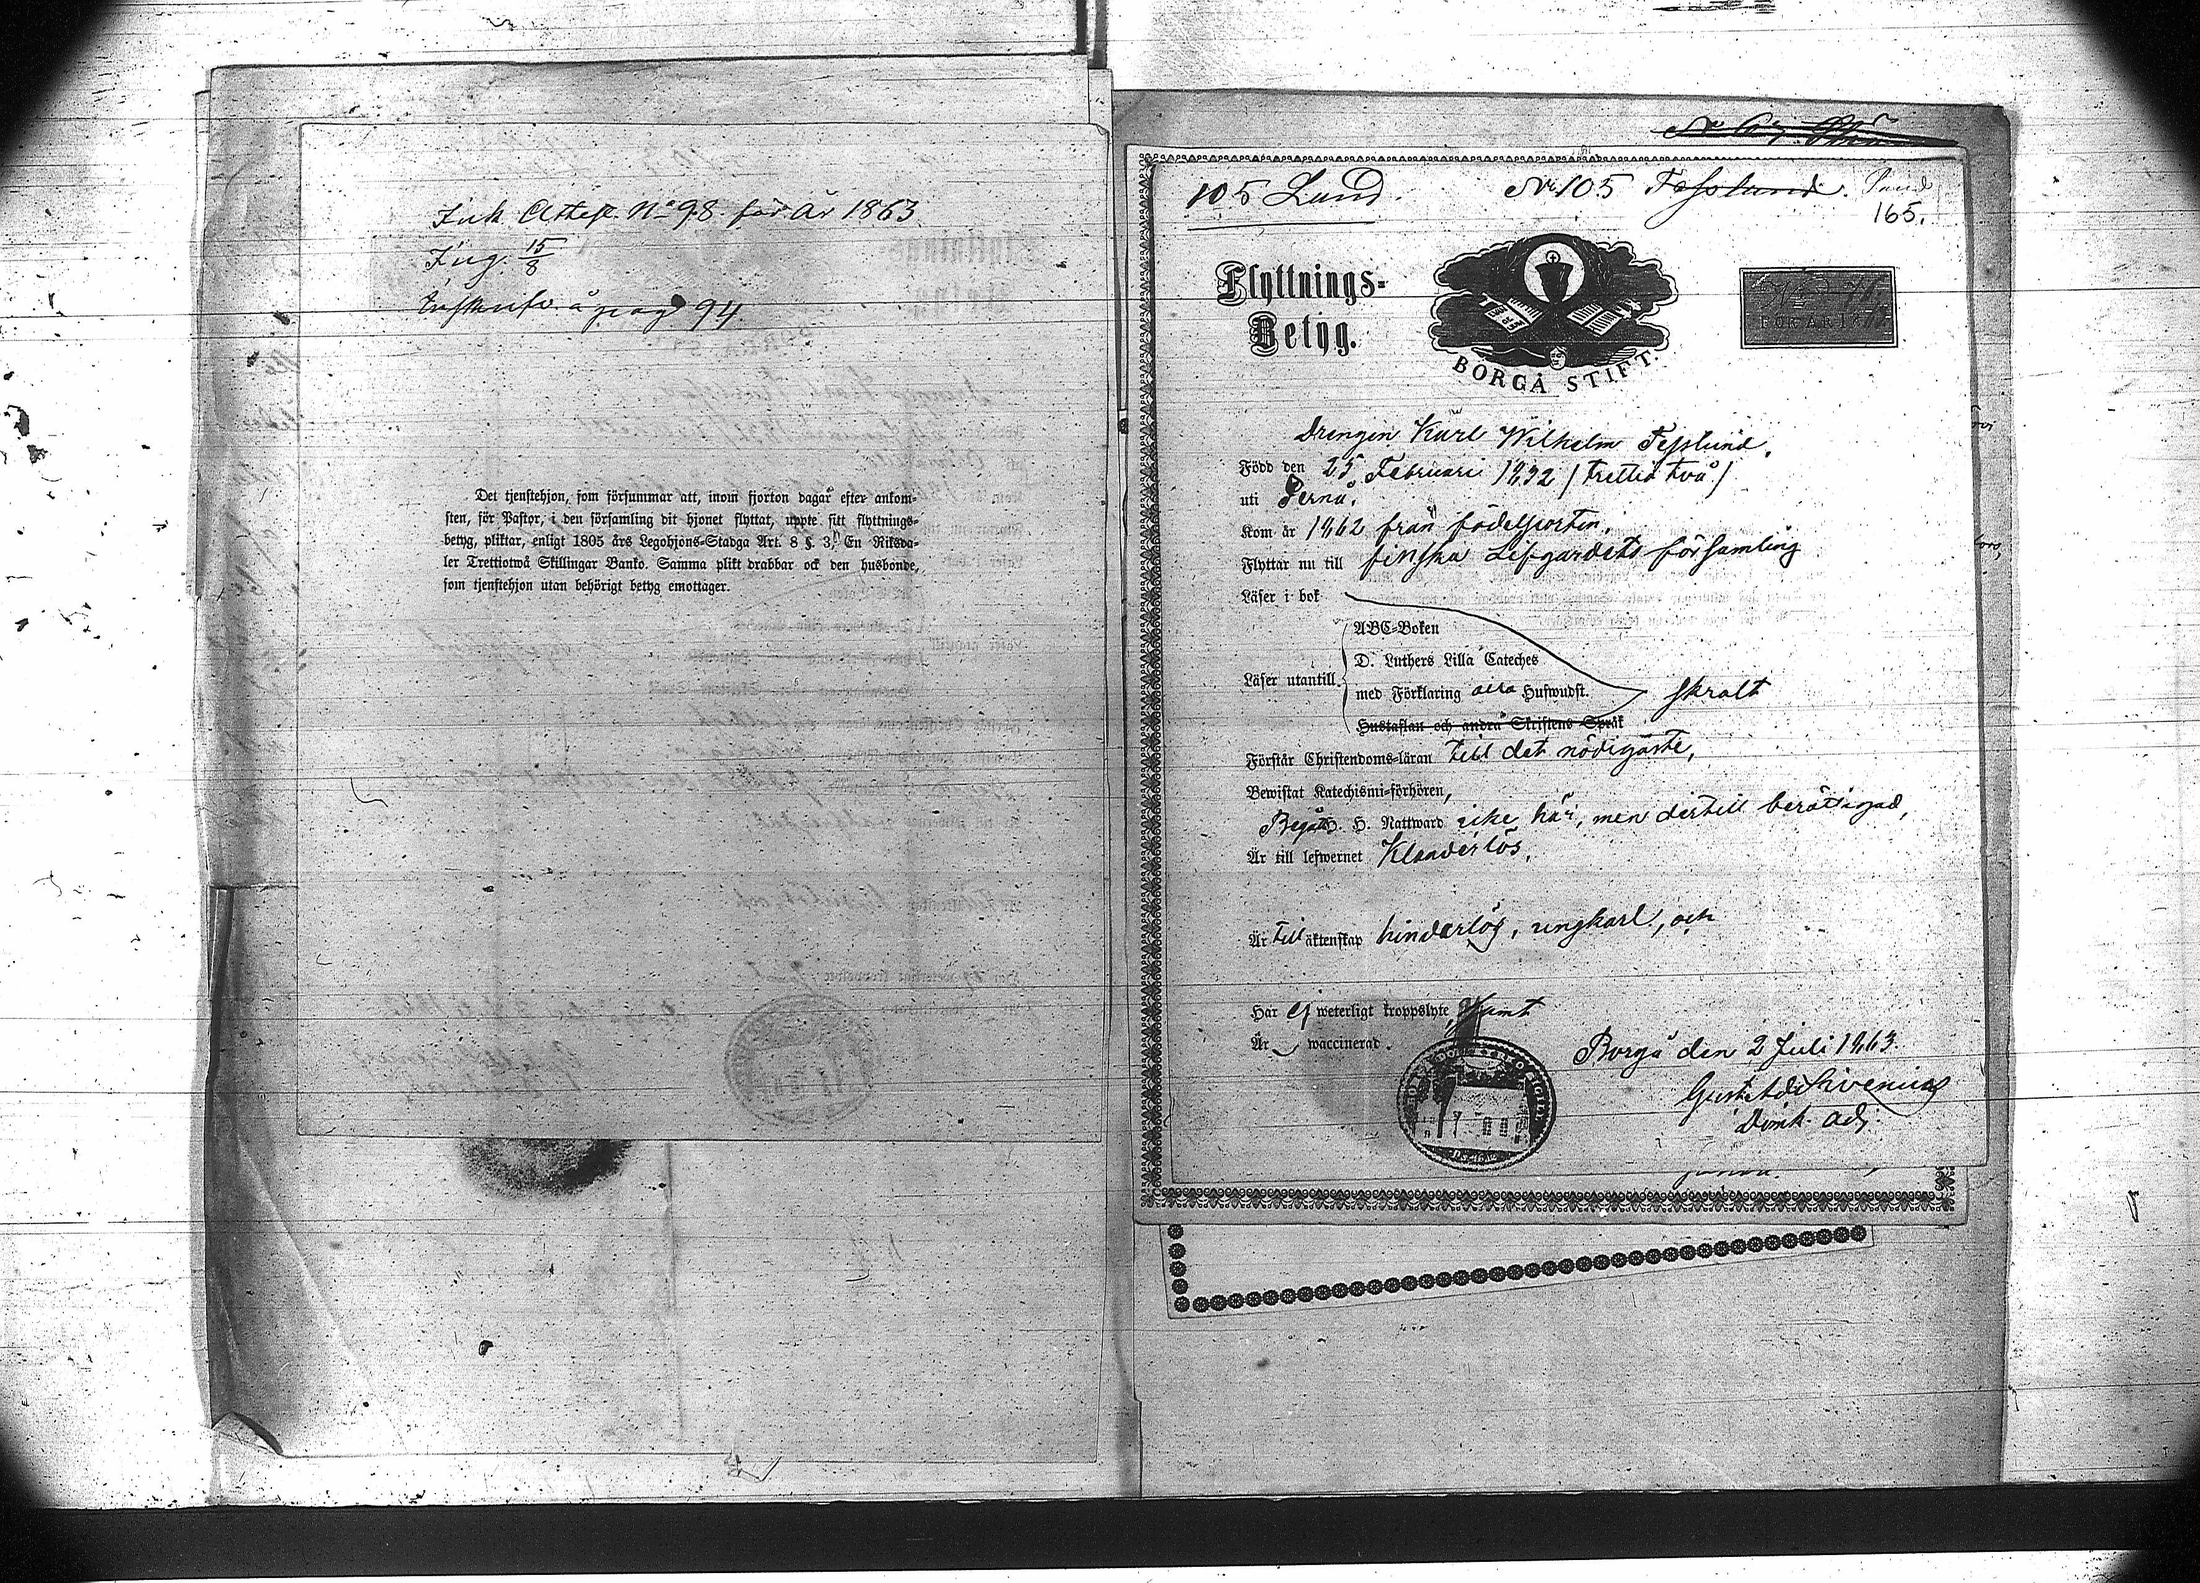 Ink Attest. No 98. för år 1863
Ing. 15/8
Inskrifv. å pag 94
Det tjenstehjon, som försummar att, inom fjorton dagar efter ankom-
sten, för Pastor, i den församling dit hjonet flyttat, uppte sitt flyttnings-
betyg, pliktar, enligt 1805 års Legohjons-Stadga Art. 8 §. 3, En Riksda-
ler Trettiotwå Skillingar Banko. Samma plikt drabbar ock den husbonde,
som tjenstehjon utan behörigt betyg emottager.
105 Lund.
No 105 Fesslund.
165.
Flyttnings-
Betyg.
BORGÅ STIFT.
FÖR ÅR 18
Drengen Karl Wilhelm Fesslund,
Född den 25 Februari 1832 (trettio två)
uti Perno.
Kom år 1862 från födelseorten,
Flyttar nu till finska Lifgardets församling
Läser i bok
ABC-Boken
D. Luthers Lilla Cateches
Läser utantill
med Förklaring Huswudst.
skralt
Hustaflan och andra Skriftens Språk
Förstår Christendoms-läran till det nödigaste,
Bewistat Katechismi-förhören,
Begått H. H. Nattward icke här, men dertill berättigad,
Är till lefwernet Klanderlös,
Är till äktenskap hinderlös, ungkarl, och
Har ej weterligt kroppslyte, samt
Är waccinerad.
Borgå den 2 Juli 1863.
Gust. Ad. 
Adj.